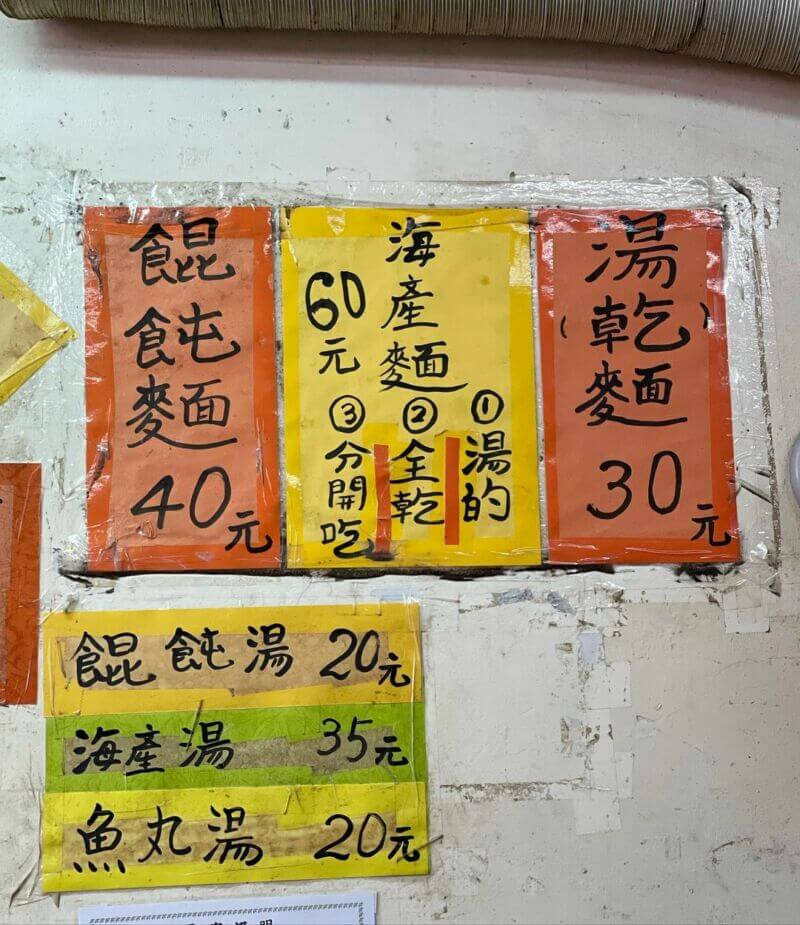 湯
(乾)
麵
30元
海產麵
60元
①湯的
②全乾
③分開吃
餛飩麵
40元
餛飩湯 20元
海產湯 35元
魚丸湯 20元